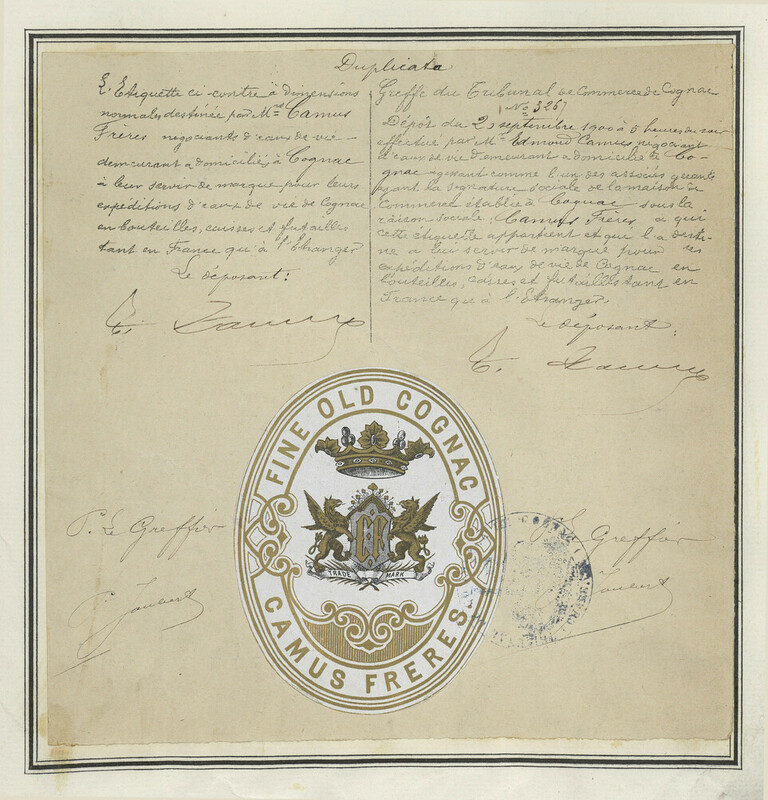 Duplicata
L'Etiquette ci-contre à dimensions
normales destinée par Mrs Camus
Frères négociants d'eaux de vie
demeurant & domiciliés à Cognac
à leur servir de marque pour leurs
expéditions d'eaux de vie de Cognac
en bouteilles, caisses et futailles
tant en France qu'à l'Etranger
Le déposant:
Greffe du Tribunal de Commerce de Cognac
No 3267
Dépôt du 2 septembre 1900 à 5 heures du soir
effectué par Mr Edmond Camus négociant
d'eaux de vie demeurant & domicilié à Co-
gnac agissant comme l'un des associés gérants
ayant la signature sociale de la maison de
Commerce établie à Cognac sous la
raison sociale, Camus Frères à qui
cette étiquette appartient et qui l'a desti-
née à lui servir de marque pour ses
expéditions d'eaux de vie de Cognac en
bouteilles, caisses et futailles tant en
France qu'à l'Etranger
Le déposant:
FINE OLD COGNAC
TRADE MARK
CAMUS FRERES
P. Le Greffier
Joubert
P. Le Greffier
Joubert
COGNAC